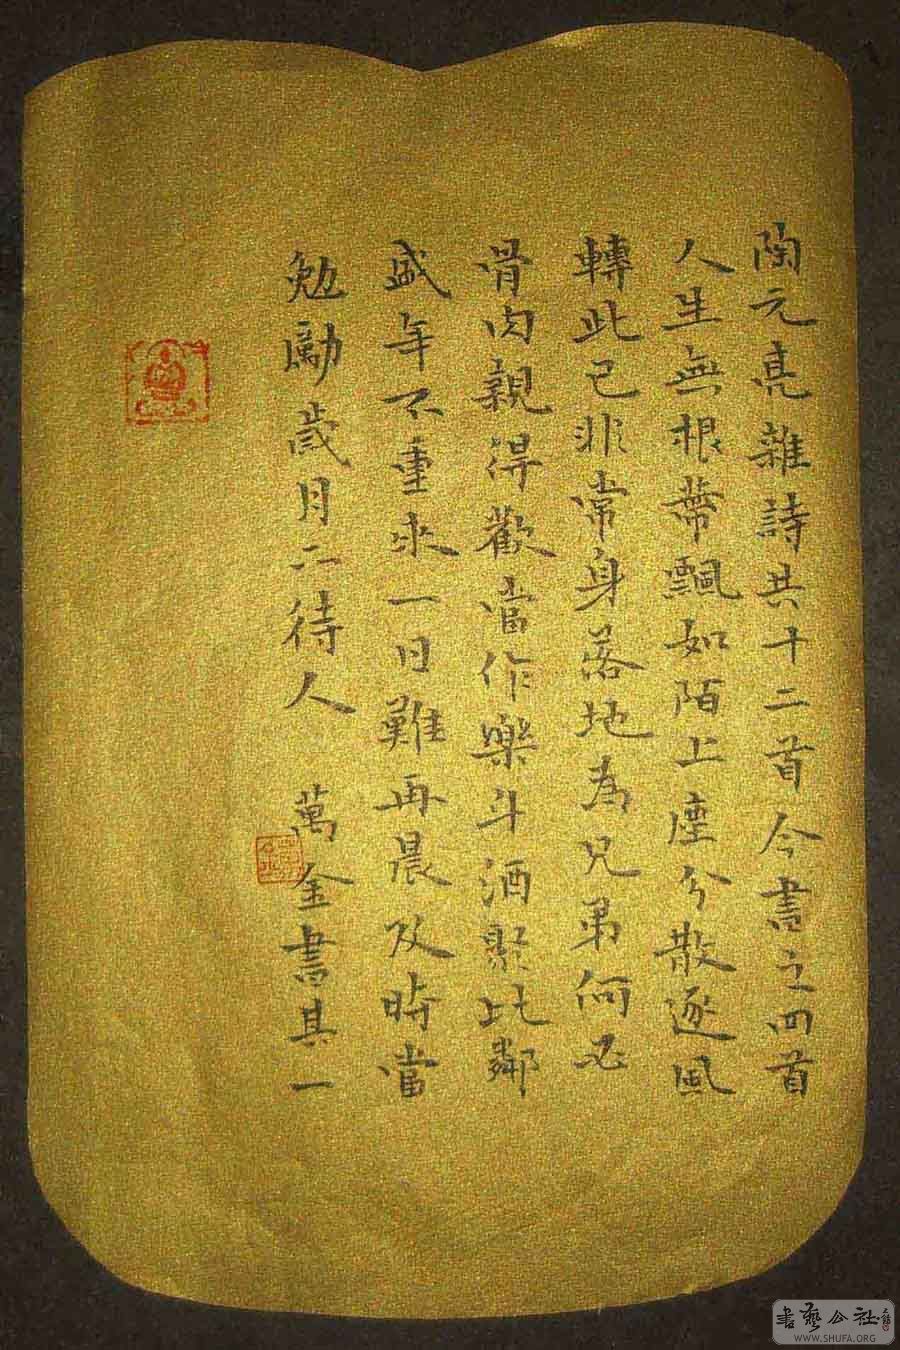 陶元亮雜詩共十二首今書之四首
人生無根蒂飄如陌上塵分散逐風
轉此已非常身落地為兄弟何必
骨肉親得歡當作樂斗酒聚比鄰
盛年不重來一日難再晨及時當
勉勵歲月不待人 萬金書其一
書藝公社
WWW.SHUFA.ORG